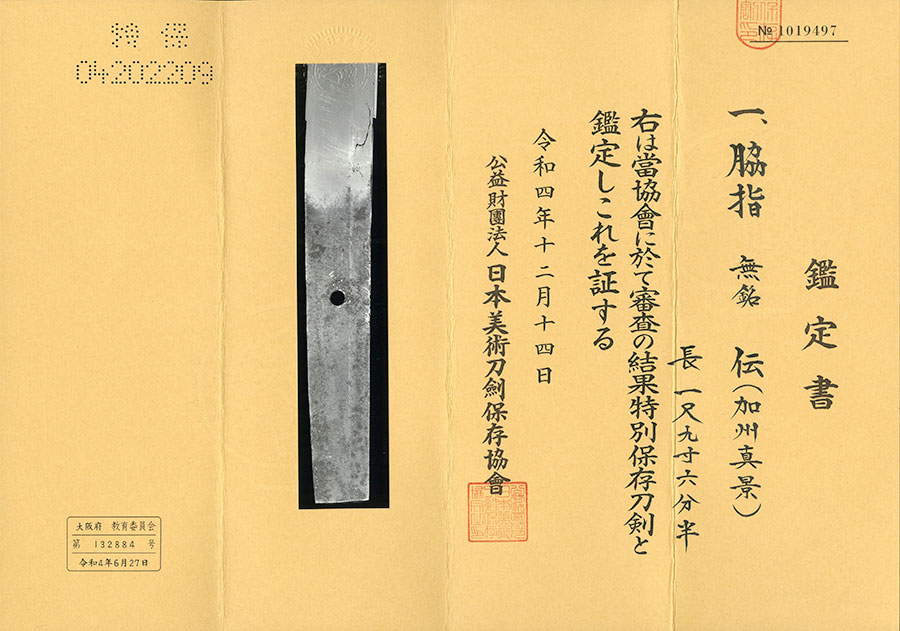 № 1019497
鑑定書
一、脇指 無銘 伝(加州真景)
長 一尺九寸六分半
右は當協會に於て審査の結果特別保存刀剣と
鑑定しこれを証する
令和四年十二月十四日
公益財團法人 日本美術刀劍保存協會
特保
04202209
大阪府 教育委員会
第 132884 号
令和4年6月27日